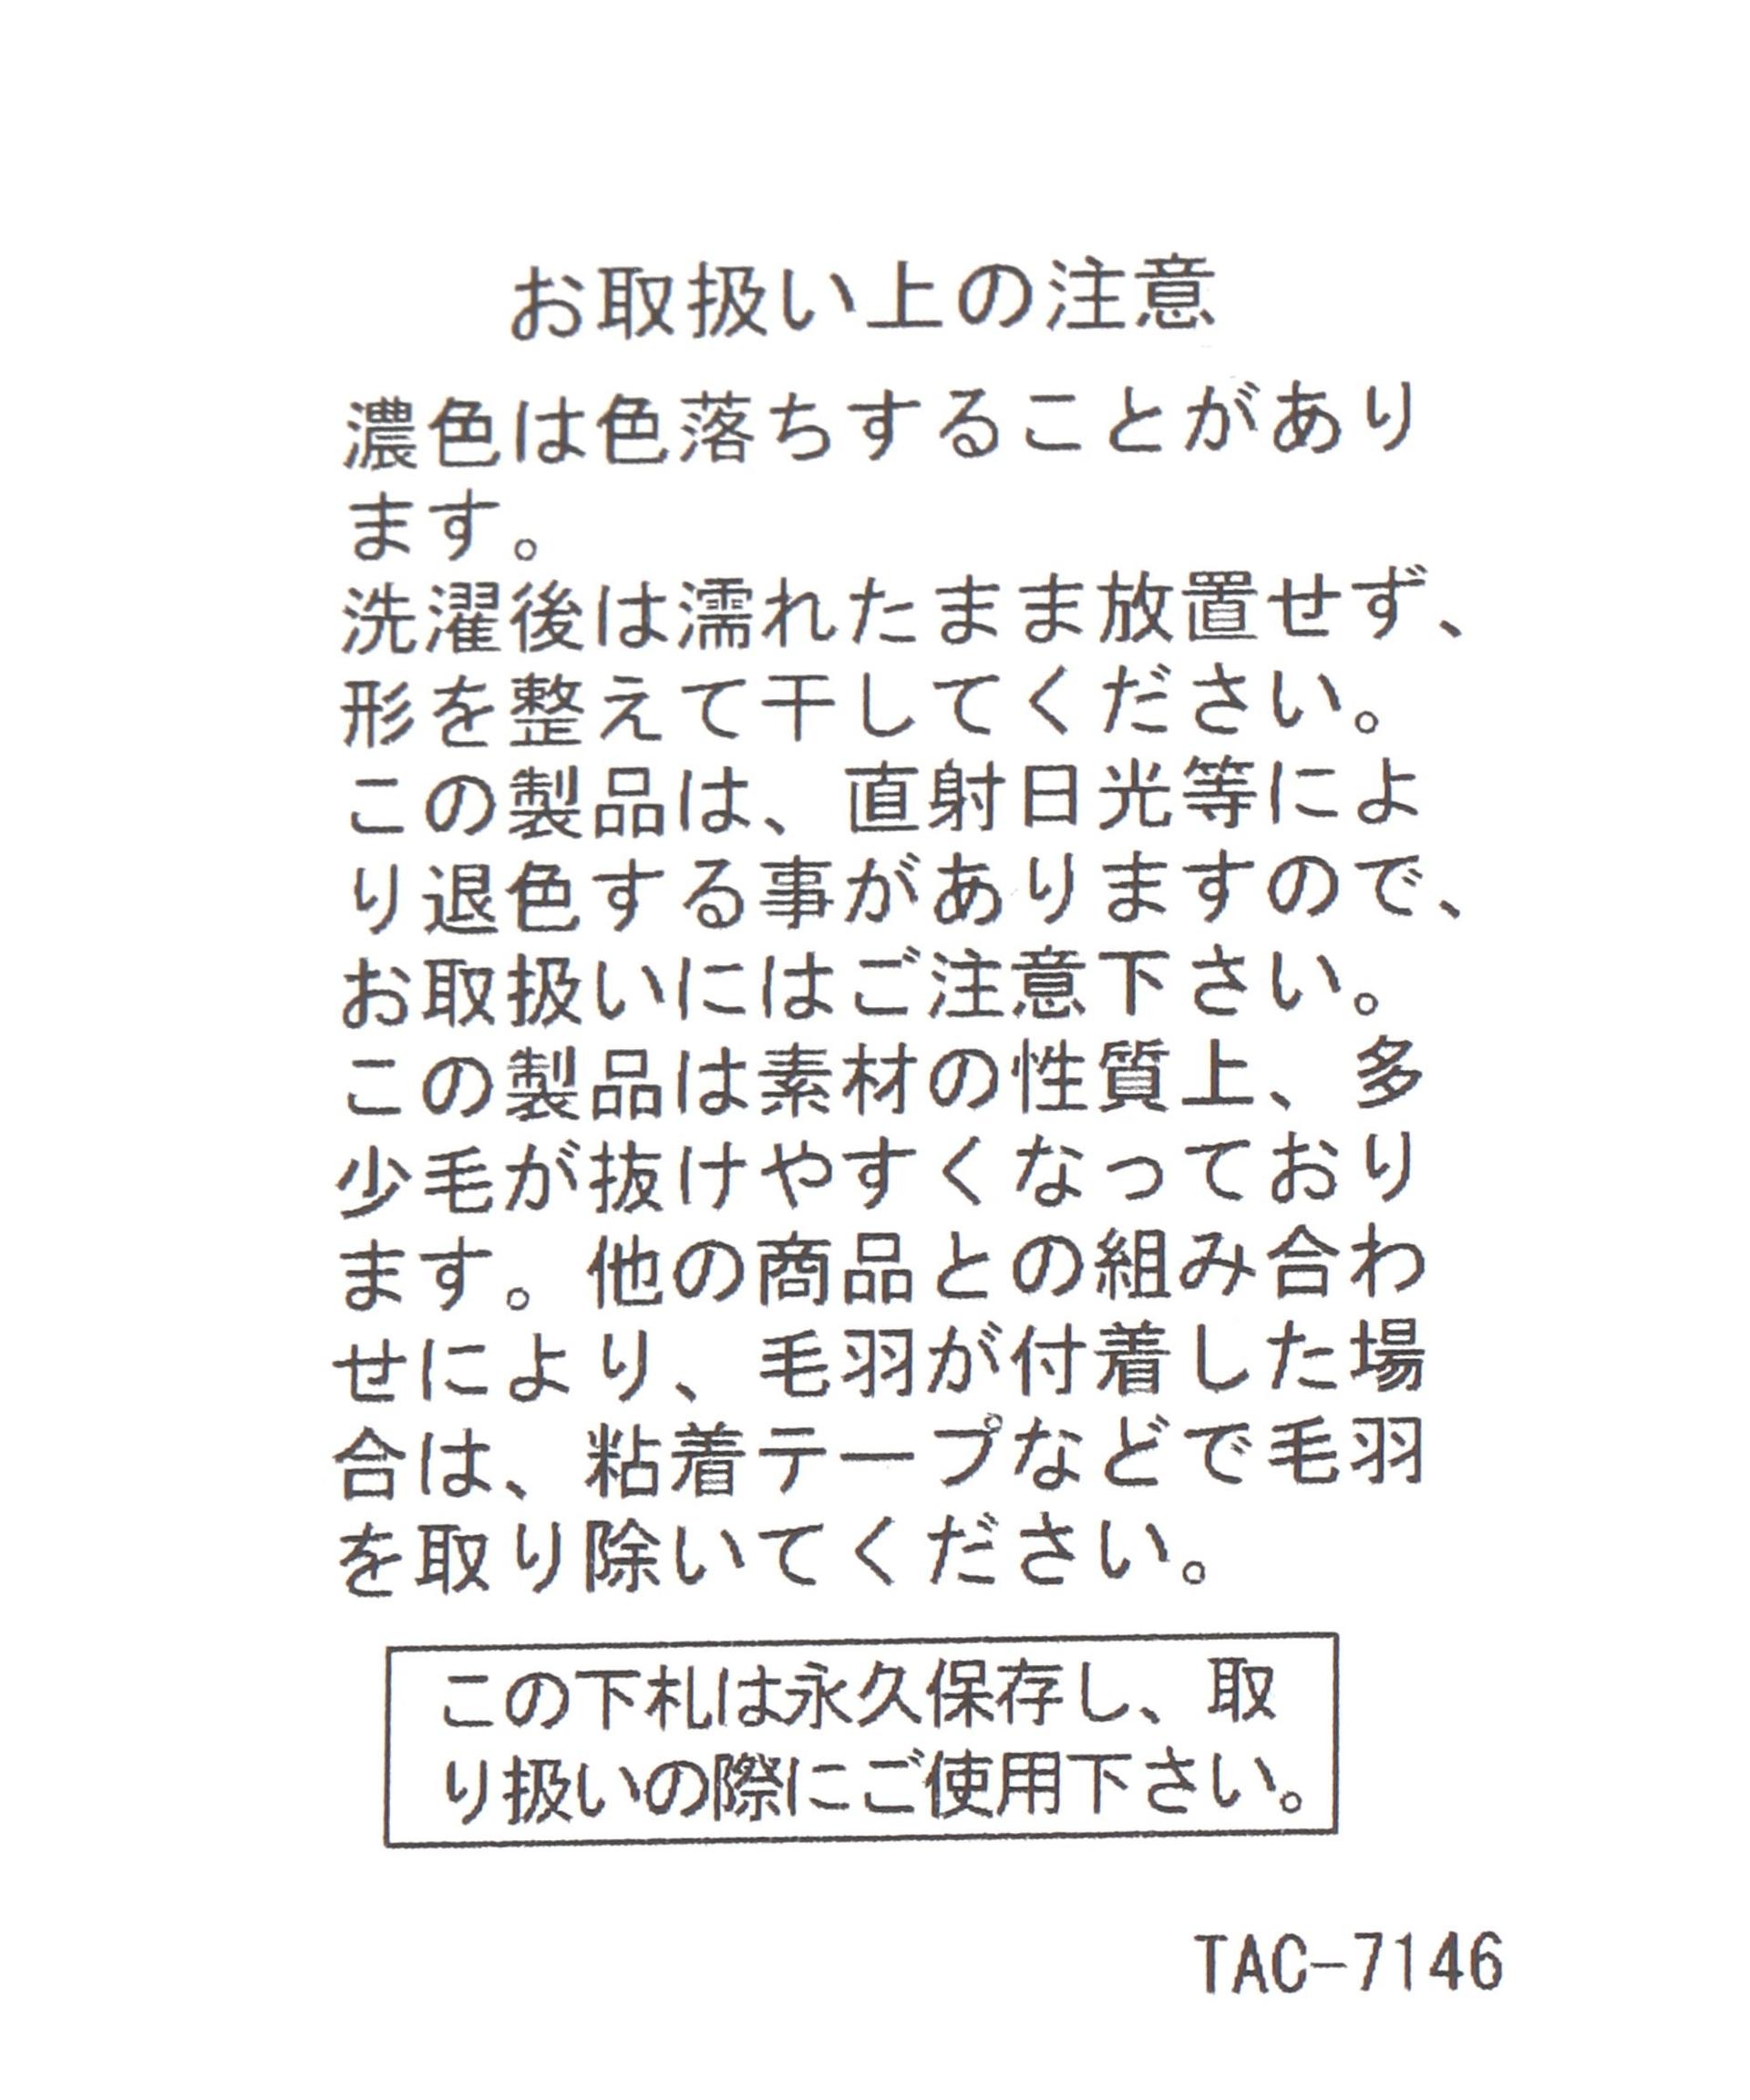 お取扱い上の注意
濃色は色落ちすることがあり
ます。
洗濯後は濡れたまま放置せず、
形を整えて干してください。
この製品は、直射日光等によ
り退色する事がありますので、
お取扱いにはご注意下さい。
この製品は素材の性質上、多
少毛が抜けやすくなっており
ます。他の商品との組み合わ
せにより、毛羽が付着した場
合は、粘着テープなどで毛羽
を取り除いてください。
この下札は永久保存し、取
り扱いの際にご使用下さい。
TAC-7146